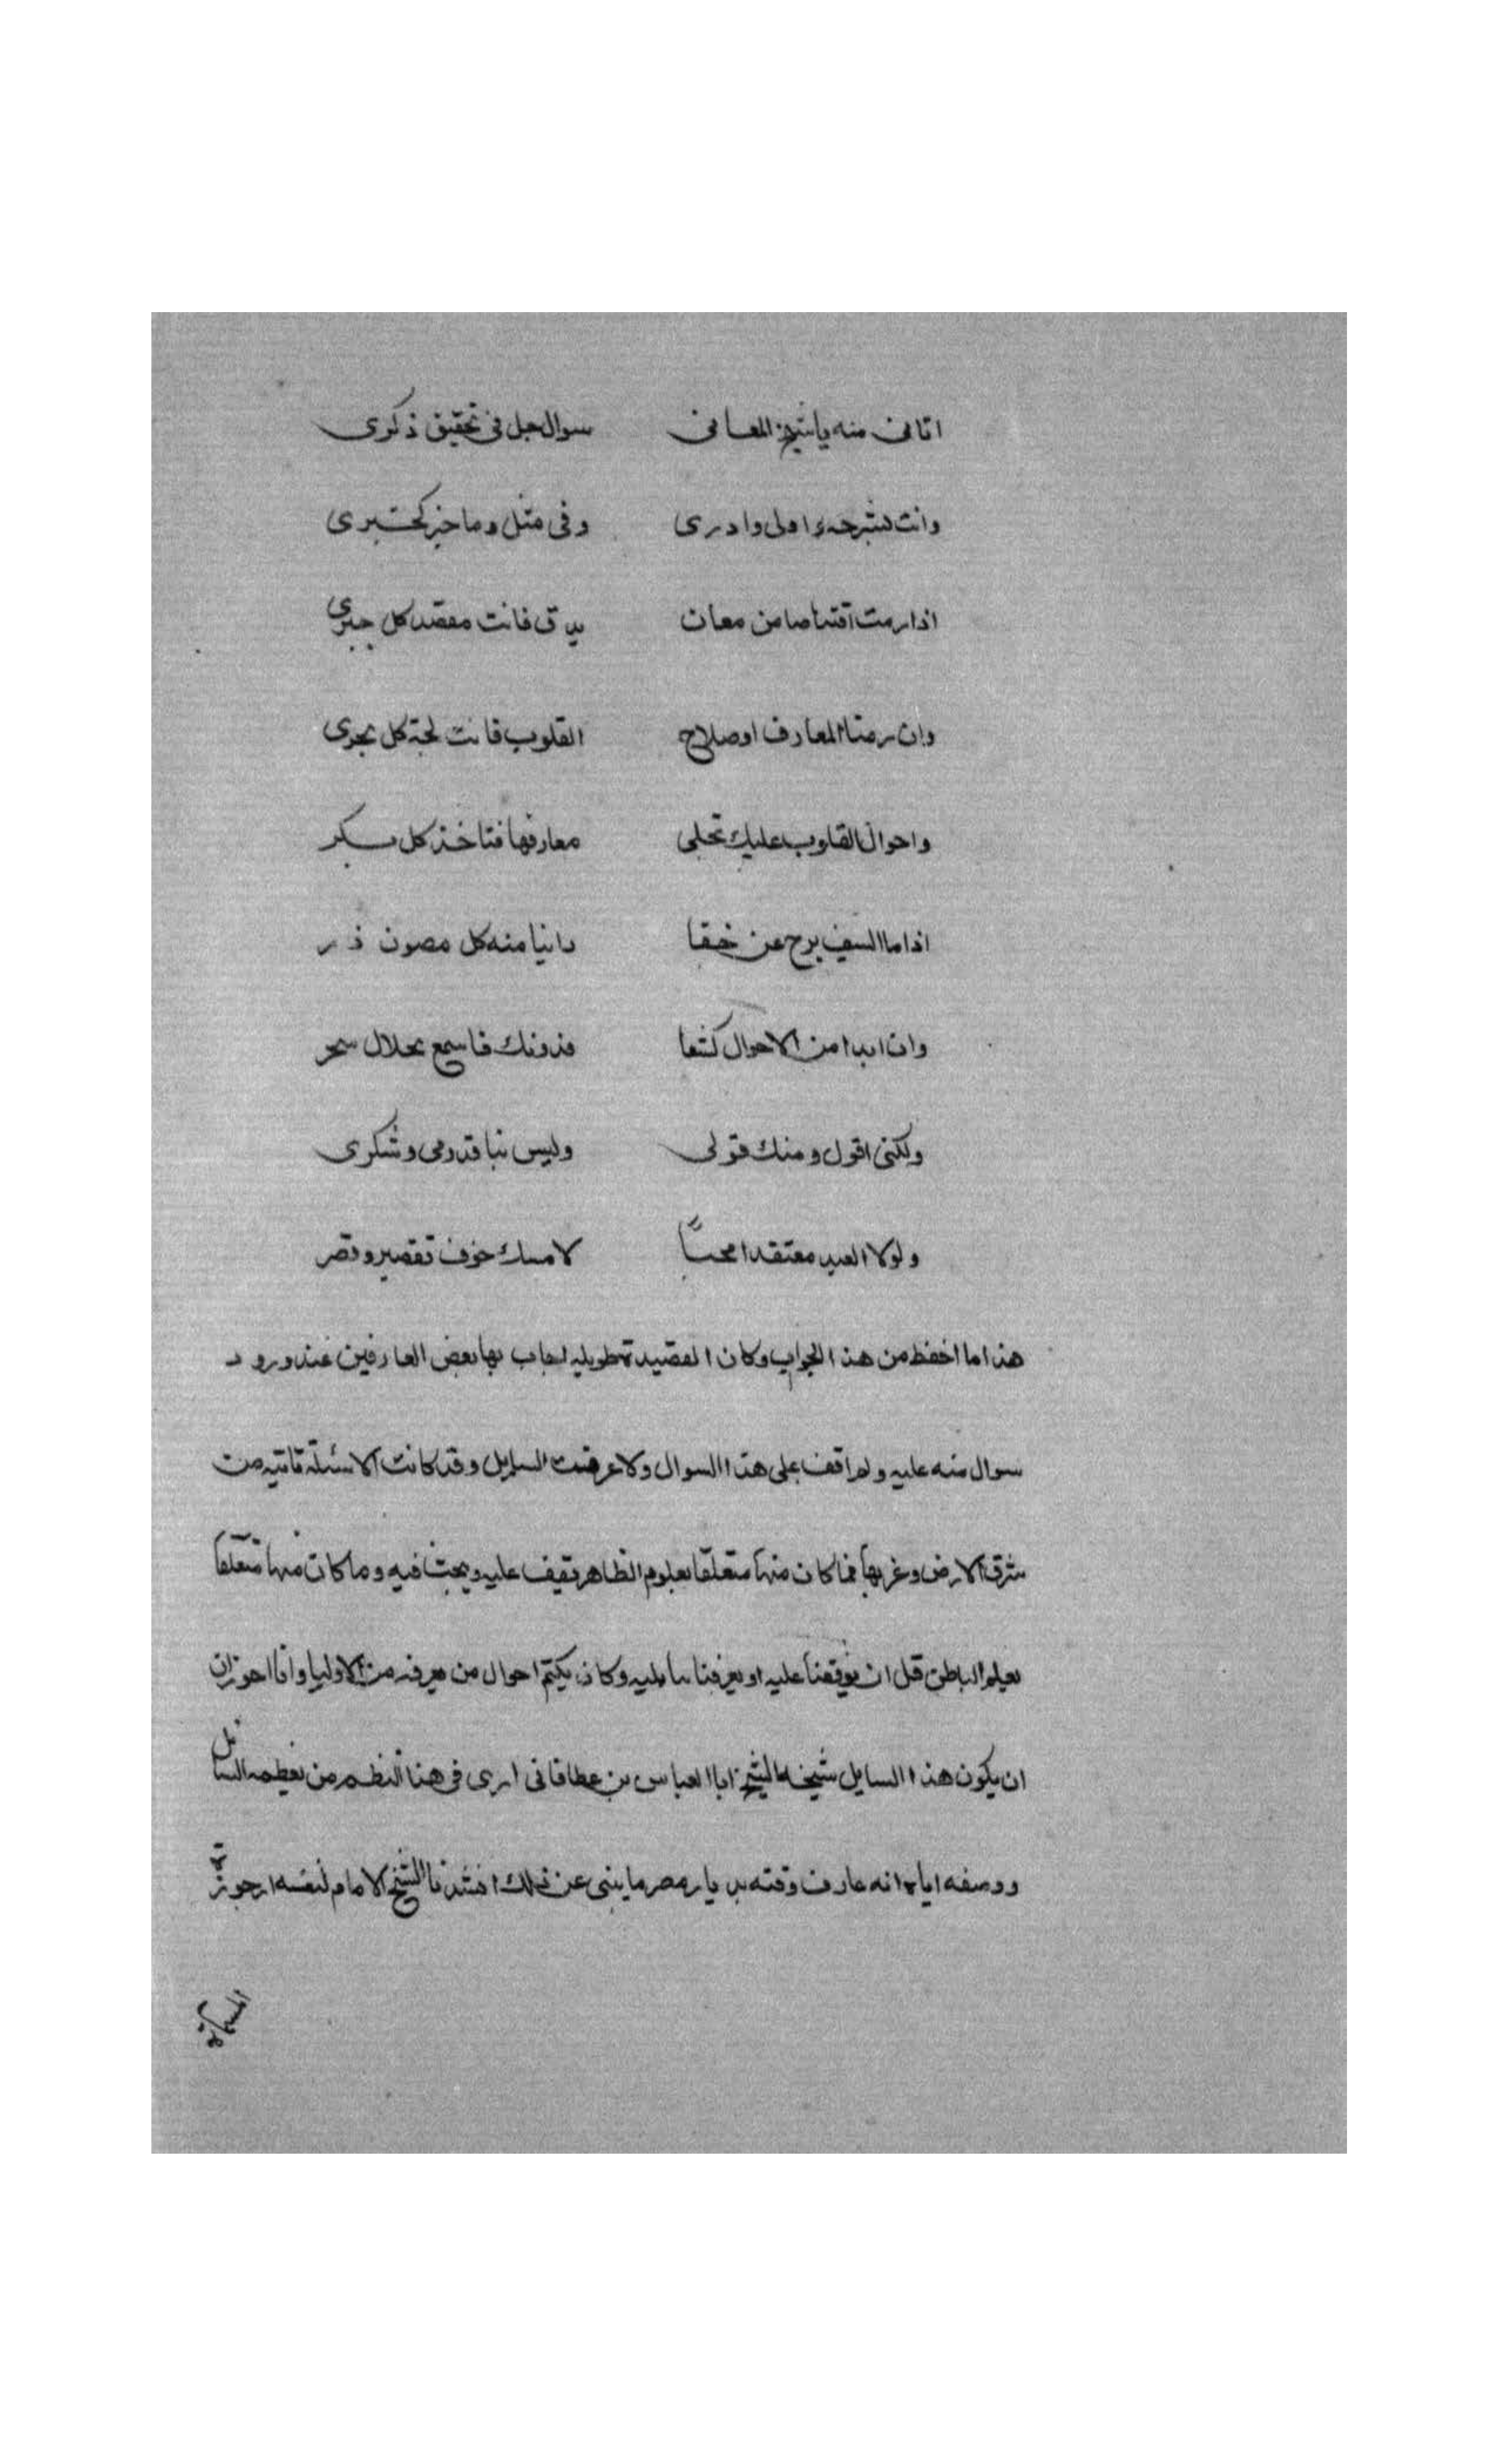 اتانى منه يا شيخ المعانى سوال جل فى تحقيق ذكرى
وانت بشرحه اولى وادرى وفى مثل وما خبر كخبرى
اذا رمت اقتناصا من معان يدق فانت مقصد كل حبرى
وان رمنا المعارف او صلاح القلوب فانت لجة كل بحرى
واحوال القلوب عليك تجلى معارفها فتاخذ كل بكر
اذا ما السيف برح عن خفا داينا منه كل مصون در
وان ابدا من الاحوال كشفا فدونك فاسمع بحلال سحر
ولكنى اقول ومنك قولى وليس نبا قدومى وشكرى
ولولا العبد معتقدا محباً لامسك خوف تقصير وقصر
هذا ما احفظ من هذا الجواب وكان القصيدة طويله اجاب بها بعض العارفين عند ورود
سوال منه عليه ولم اقف على هذا السوال ولا عرفت السايل وقد كانت الاسئلة تاتيه من
شرق الارض وغربها فما كان منها متعلقا بعلوم الظاهر نقف عليه ويبحث فيه وما كان منها متعلقا
بعلم الباطن قل ان يوقفنا عليه او يعرفنا سايليه وكان يكتم احوال من يعرفه من الاوليا وانا اجوز ان
ان يكون هذا السايل شيخه الشيخ ابا العباس بن عطا فانى ارى فى هذا النظم من تعظيمه السائل
ووصفه اياه انه عارف وقته بديار مصر ما ينبى عن ذلك انشدنا الشيخ الامام لنفسه ارجوزة
المسماة